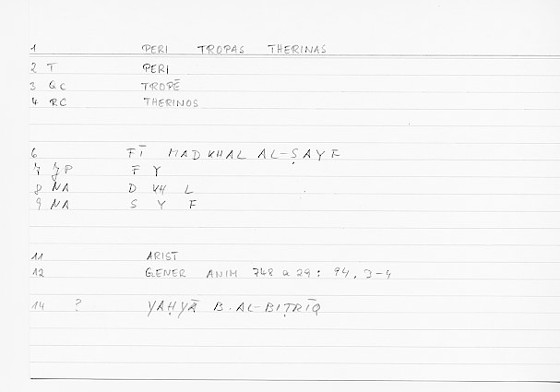 1 PERI TROPAS THERINAS
2 T PERI
3 GC TROPĒ
4 RC THERINOS
6 FĪ MADKHAL AL-ṢAYF
7 JP F Y
8 NA D KH L
9 NA S Y F
11 ARIST
12 GENER ANIM 748 a 29 : 94, 3-4
14 ? YAḤYĀ B. AL-BIṬRĪQ